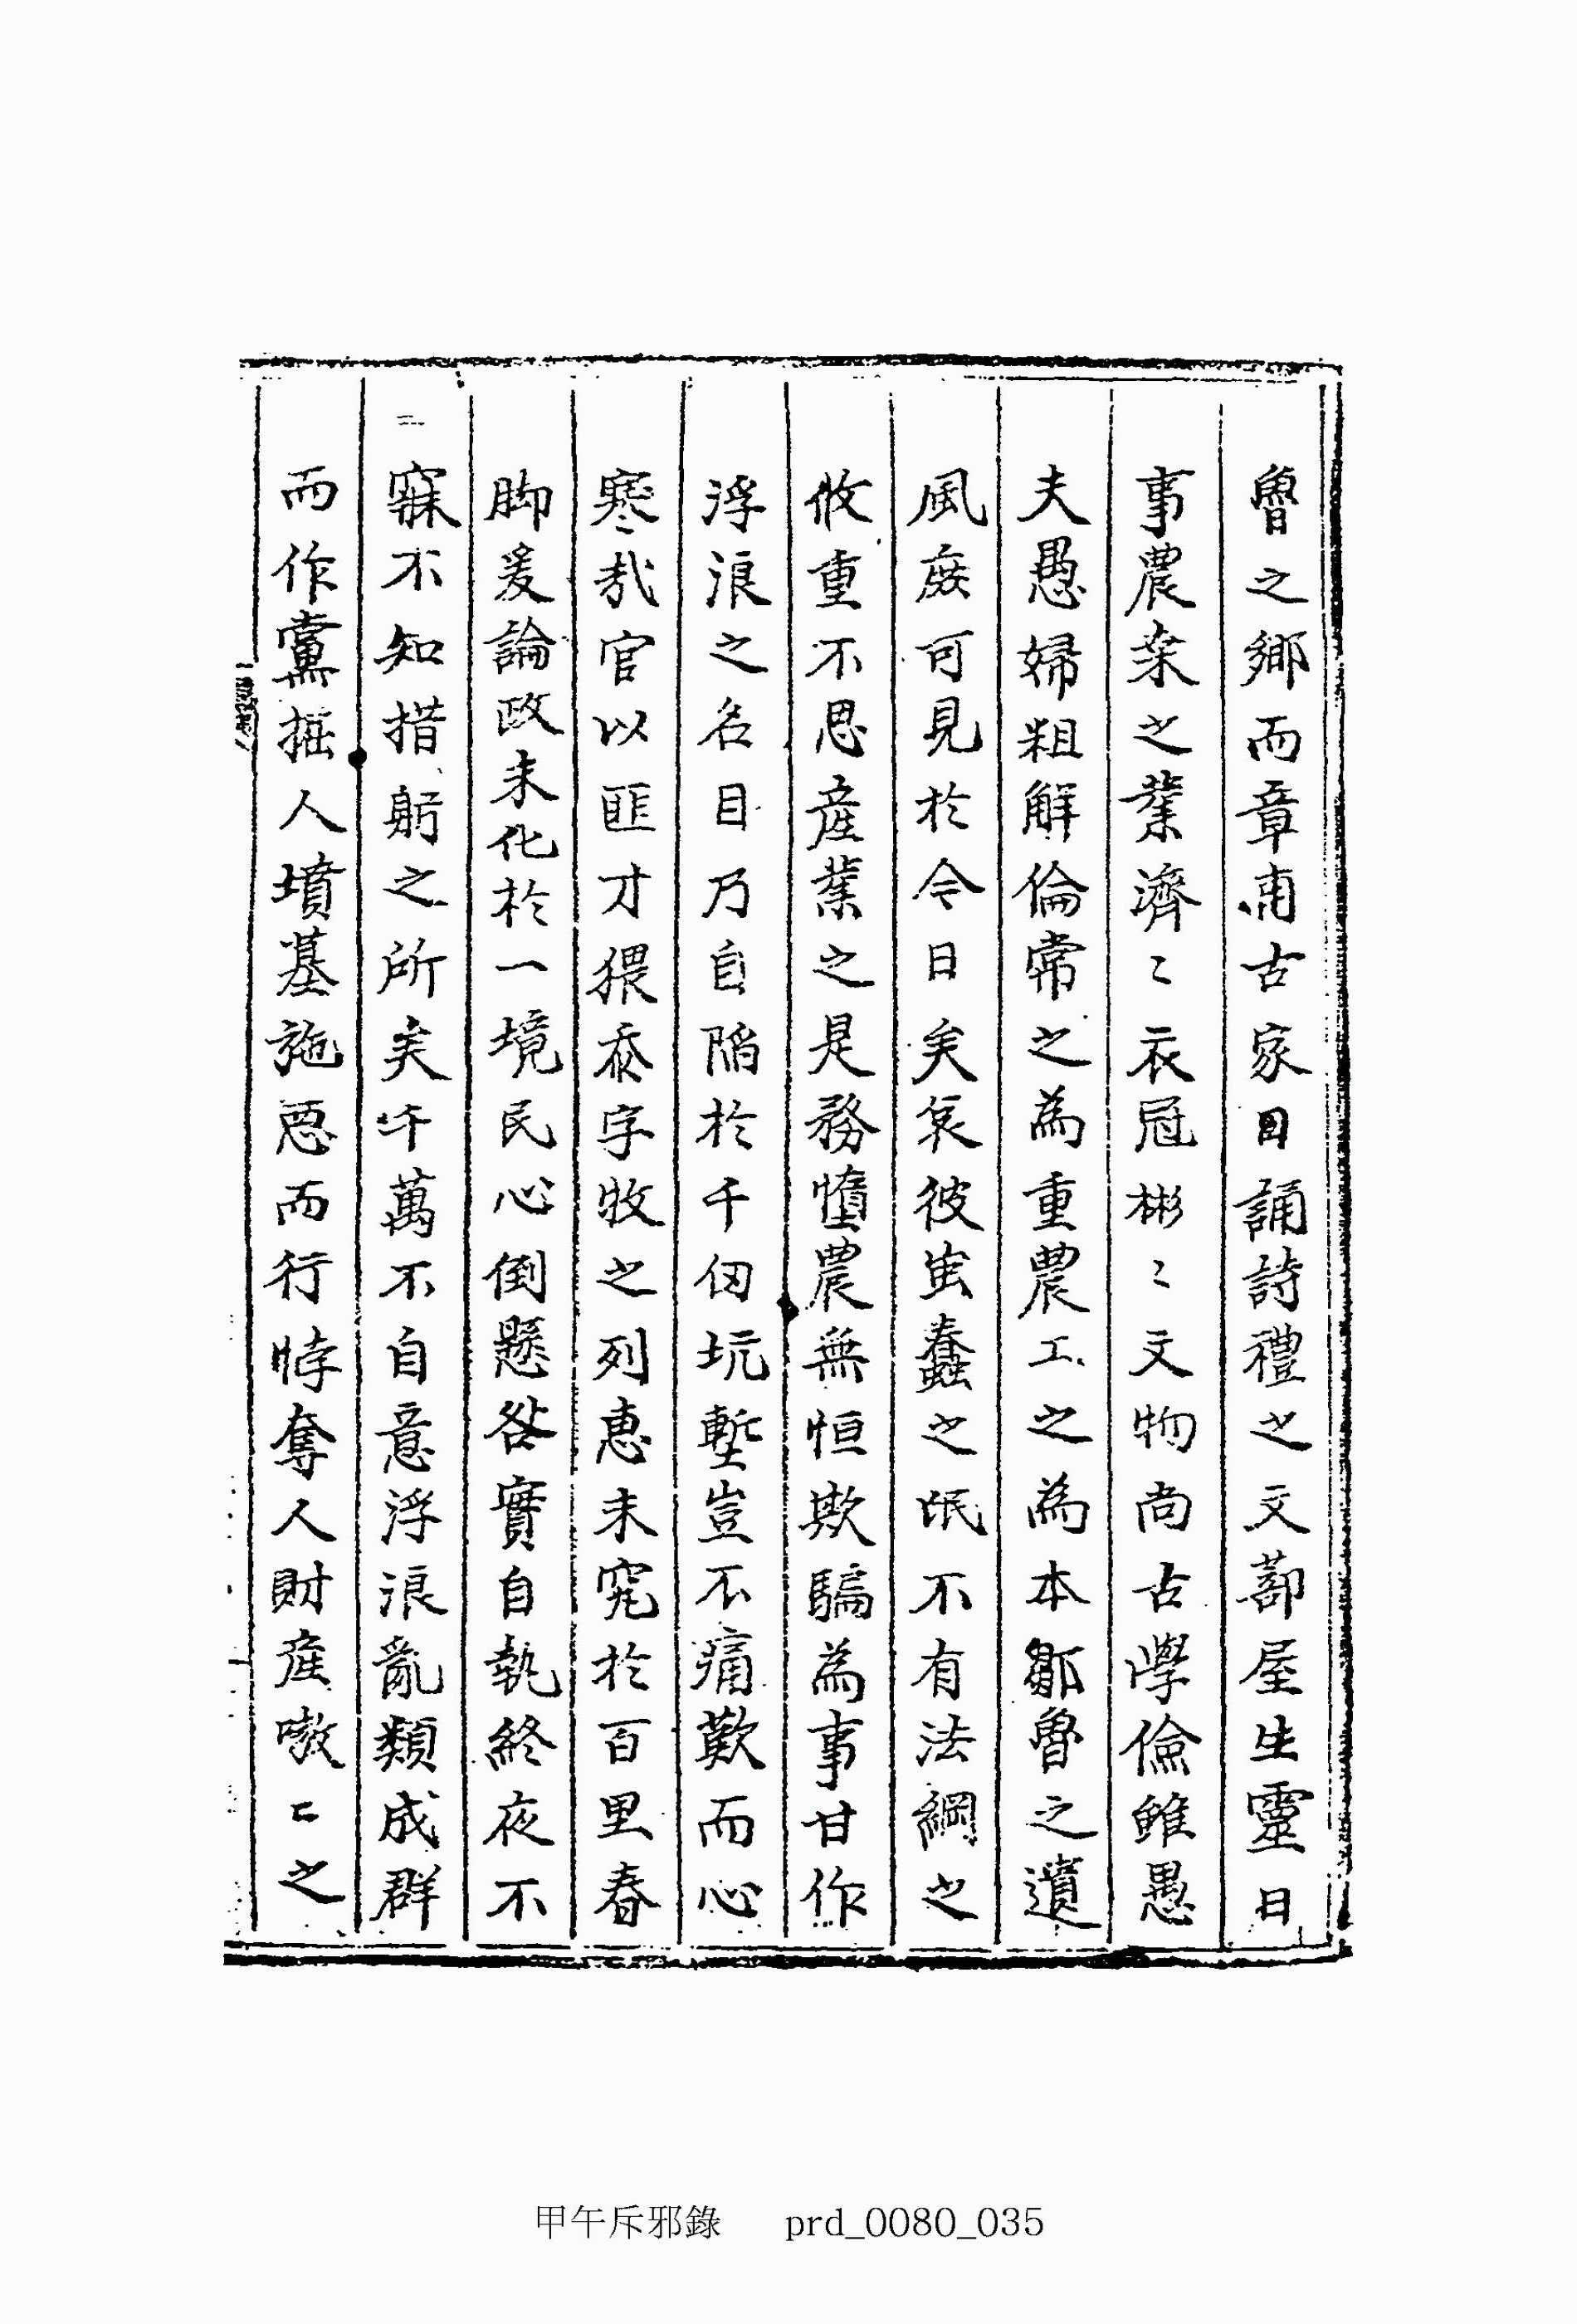 魯之鄉而章甫古家日誦詩禮之文蔀屋生靈日
事農桒之業濟〻衣冠彬〻文物尚古學儉雖愚
夫愚婦粗解倫常之為重農工之為本鄒魯之遺
風庶可見於今日矣哀彼蚩蠢之氓不有法綱之
攸重不思産業之是務惰農無恒欺騙為事甘作
浮浪之名目乃自陷於千仞坑塹豈不痛歎而心
寒㦲官以匪才猥忝字牧之列惠未究於百里春
脚爰論政未化於一境民心倒懸咎實自執終夜不
寐不知措躬之所矣千萬不自意浮浪亂類成群
而作黨掘人墳墓施惡而行悖奪人財産嗷〻之
甲午斥邪錄 prd_0080_035